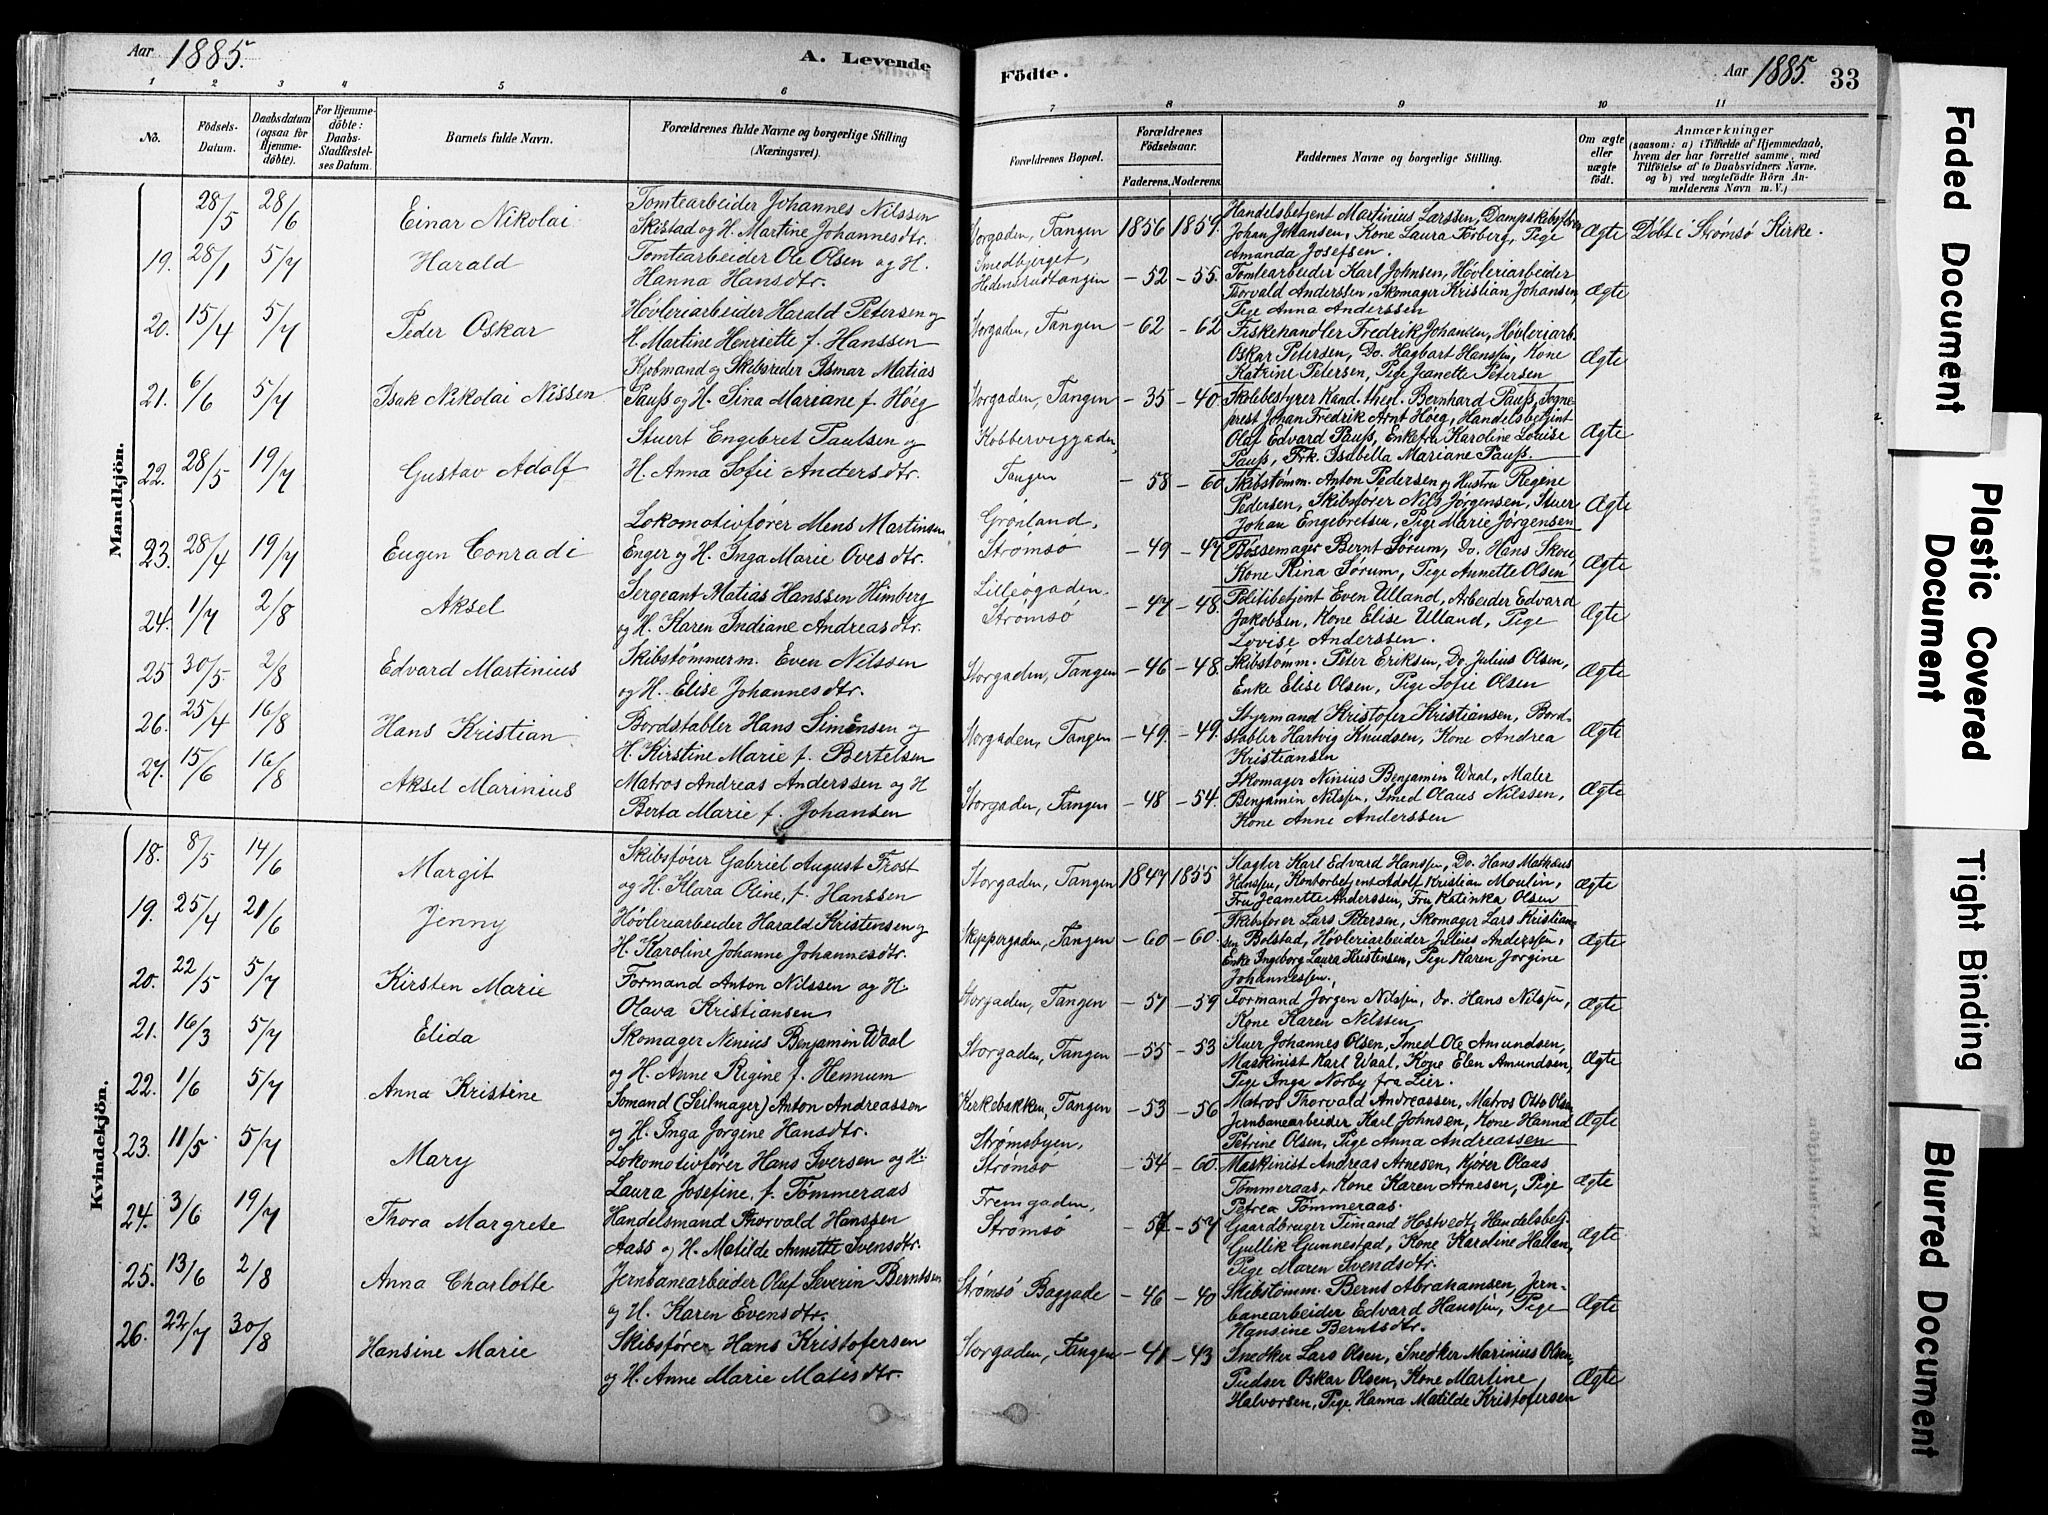 Aar 1885.
A. Levende
Födte.
Aar 1885. 33
1 2 3 4 5 6 7 8 9 10 11
No.
Födsels-
Datum.
Daabsdatum
(ogsaa for
Hjemme-
døbte).
For Hjemme-
døbte:
Daabs-
Stadfæstel-
ses Datum.
Barnets fulde Navn.
Forældrenes fulde Navne og borgerlige Stilling
(Næringsvei).
Forældrenes Bopæl.
Forældrenes
Födselsaar.
Faderens. Moderens.
Faddernes Navne og borgerlige Stilling.
Om ægte
eller
uægte
födt.
Anmærkninger
(saasom: a) i Tilfælde af Hjemmedaab,
hvem der har forrettet samme, med
Tilföielse af to Daabsvidners Navne,
og b) ved uægtefödte Börn An-
melderens Navn m. V.)
Mandkjön.
28/5 28/6 Einar Nikolai
Tomtearbeider Johannes Nilssen
Skistad og H. Martine Johannesdtr.
Storgaden, Tangen 1856 1859.
Handelsbetjent Martinius Larssen, Dampskibsfører
Johan Johansen, Kone Laura Torberg, Pige
Amanda Josefsen.
Ægte Døbt i Strømsø Kirke.
19. 28/1 5/7 Harald
Tomtearbeider Ole Olsen og H.
Hanna Hansdtr.
Smedbjerget,
Hedensrudtangen -52 -55.
Tomtearbeider Karl Johnsen, Høvleriarbeider
Torvald Anderssen, Skomager Kristian Johansen,
Pige Anna Anderssen
Ægte
20. 15/4 5/7 Peder Oskar
Høvleriarbeider Harald Petersen og
H. Martine Henriette f. Hanssen
Storgaden, Tangen -62 -62.
Fiskehandler Fredrik Johansen, Høvleriarb.
Oskar Petersen, Do. Hagbart Hanssen, Kone
Katrine Petersen, Pige Jeanette Petersen
Ægte
21. 6/6 5/7 Isak Nikolai Nissen
Kjøbmand og Skibsreder Ismar Matias
Pauss og H. Lina Mariane f. Høeg
Storgaden, Tangen -35 -40
Skolebestyrer Kand. theol. Bernhard Pauss, Sogne-
prest Johan Fredrik Arnt Høeg, Handelsbetjent
Oluf Edvard Pauss, Enkefru Karoline Louise
Pauss, Frk. Isabella Mariane Pauss.
Ægte
22. 28/5 19/7 Gustav Adolf
Stuert Engebret Paulsen og
H. Anna Sofie Andersdtr.
Kobberviggaden,
Tangen -58 -60
Skibstømm. Anton Pedersen og Hustru Regine
Pedersen, Skibsfører Nils Jørgensen, Stuer
Johan Engebretsen, Pige Marie Jørgensen
Ægte
23. 28/4 19/7 Eugen Conradi
Lokomotivfører Mens Martinsen
Enger og H. Inga Marie Ovesdtr.
Grønland,
Strømsø -49 -47
Bøssemager Bernt Sørum, Do. Hans Skou,
Kone Rina Sørum, Pige Annette Olsen
Ægte
24. 1/7 2/8 Aksel
Sergeant Matias Hanssen Himberg
og H. Karen Indiane Andreasdtr.
Lilleøgaden,
Strømsø -47 -48.
Politibetjent Even Ulland, Arbeider Edvard
Jakobsen, Kone Elise Ulland, Pige
Lovise Anderssen.
Ægte
25 30/5 2/8 Edvard Martinius
Skibstømmerm. Even Nilssen
og H. Elise Johannesdtr.
Storgaden, Tangen -46 -48.
Skibstømm. Peter Eriksen, Do. Julius Olsen,
Enke Elise Olsen, Pige Sofie Olsen
Ægte
26. 25/4 16/8 Hans Kristian
Bordstabler Hans Simensen og
H. Kirstine Marie f. Bertelsen
Storgaden, Tangen -49. -49.
Styrmand Kristofer Kristiansen, Bord-
stabler Hartvig Knudsen, Kone Andrea
Kristiansen
Ægte
27. 15/6 16/8 Aksel Marinius
Matros Andreas Anderssen og H
Berta Marie f. Johansen
Storgaden, Tangen -48 -54.
Skomager Ninius Benjamin Waal, Maler
Benjamin Nilssen, Smed Olaus Nilssen,
Kone Anne Anderssen
Ægte
Kvindekjön.
18. 8/5 14/6 Margit
Skibsfører Gabriel August Frost
og H. Klara Oline f. Hanssen
Storgaden, Tangen 1847 1855
Slagter Karl Edvard Hanssen, Do. Hans Mathæus
Hanssen, Kontorbetjent Adolf Kristian Moulin,
Fru Jeanette Anderssen, Fru Katinka Olsen
Ægte
19. 25/4 21/6 Jenny
Høvleriarbeider Harald Kristensen og
H. Karoline Johanne Johannesdtr.
Skippergaden, Tangen -60 -60.
Skibsfører Lars Petersen, Skomager Lars Kristian-
sen Bolstad, Høvleriarbeider Julius Anderssen,
Enke Ingeborg Laura Kristensen, Pige Karen Jorgine
Johannessen.
Ægte
20. 22/5 5/7 Kirsten Marie
Formand Anton Nilssen og H.
Olava Kristiansen
Storgaden, Tangen -57 -59
Formand Jørgen Nilssen, Do. Hans Nilssen,
Kone Karen Nilssen
Ægte
21. 16/3 5/7 Elida
Skomager Ninius Benjamin Waal
og H. Anne Regine f. Hennum
Storgaden, Tangen -55 -53
Stuer Johannes Olsen, Smed Ole Amundsen,
Maskinist Karl Waal, Kone Elen Amundsen,
Pige Inga Norby fra Lier.
Ægte
22. 1/6 5/7 Anna Kristine
Sømand (Seilmager) Anton Andreassen
og H. Inga Jørgine Hansdtr.
Kirkebakken, Tangen -53 -56
Matros Thorvald Andreassen, Matros Otto Olsen,
Jernbanearbeider Karl Johnsen, Kone Hanna
Petrine Olsen, Pige Anna Andreassen
Ægte
23. 11/5 5/7 Mary
Lokomotivfører Hans Iversen og H.
Laura Josefine f. Tømmeraas
Strømsbyen,
Strømsø -54 -60.
Maskinist Andreas Arnesen, Kjører Olaas
Tømmeraas, Kone Karen Arnesen, Pige
Petrea Tømmeraas.
Ægte
24. 3/6 19/7 Thora Margrete
Handelsmand Thorvald Hanssen
Aass og H. Matilde Annette Svensdtr.
Fremgaden,
Strømsø -57
Gaardbruger Timand Hostvedt, Handelsbetj.
Gullik Gunnestad, Kone Karoline Hallan,
Pige Maren Svendsdtr.
Ægte
25. 13/6 2/8 Anna Charlotte
Jernbanearbeider Oluf Severin Berntsen
og H. Karen Evensdtr.
Strømsø Baggade -46 -40
Skibstømm. Bernt Abrahamsen, Jern-
banearbeider Edvard Hanssen, Pige
Hansine Berntsdtr.
Ægte
26. 22/7 30/8 Hansine Marie
Skibsfører Hans Kristofersen
og H. Anne Marie Matisdtr.
Storgaden, Tangen -41 -43
Snedker Lars Olsen, Snedker Marinius Olsen,
Pudser Oskar Olsen, Kone Martine
Halvorsen, Pige Hanna Matilde Kristofersen
Ægte
Faded Document
Plastic Covered
Document
Tight Binding
Blurred Document